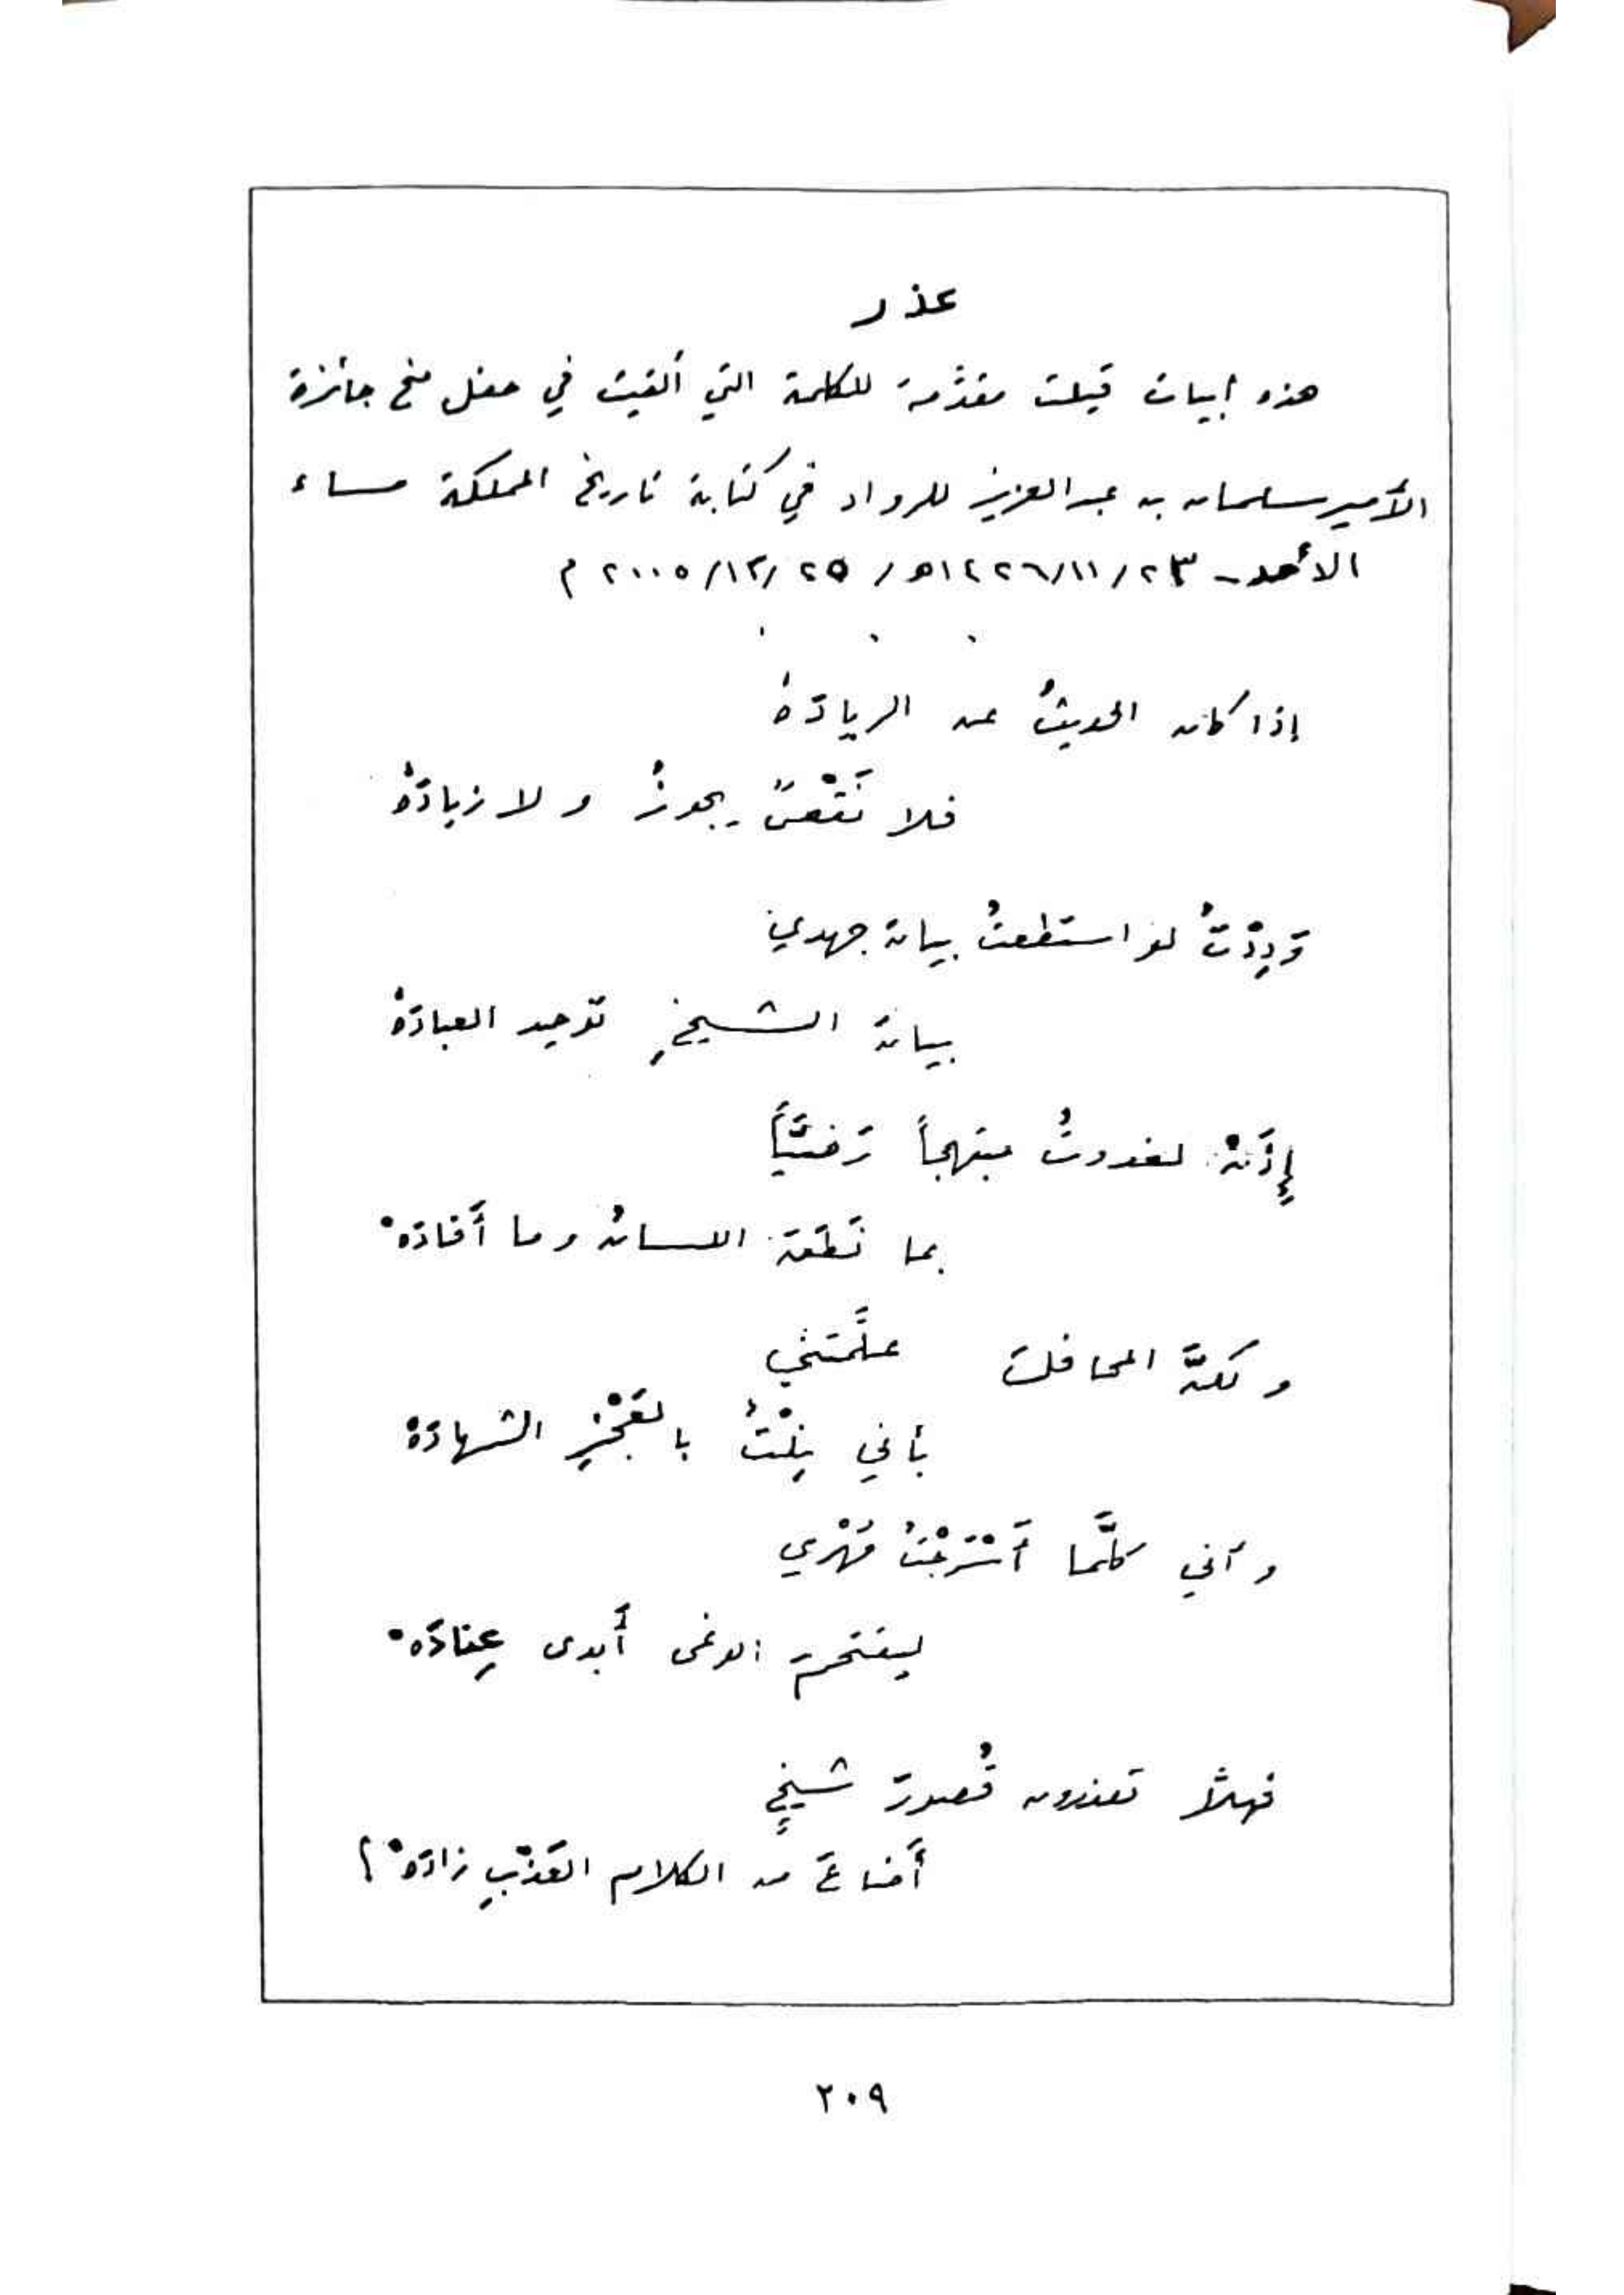 عذر
هذه أبيات قيلت مقدَّمة للكلمة التي أُلقيت في حفل منح جائزة
الأمير سلمان بن عبدالعزيز للرواد في كتابة تاريخ المملكة مساء
الأحد - ٢٣/١١/١٤٢٦هـ / ٢٥/١٢/٢٠٠٥ م
إذا كان الحديثُ عن الريادَهْ
فلا نَقْصٌ يجوزُ ولا زيادَهْ
وَدِدْتُ لو استطعتُ بيانَ جهدي
بيانَ الشيخِ توحيد العبادَهْ
إِذَنْ لغدوتُ مبتهجاً رَضيَّاً
بما نَطَقَ اللسانُ وما أَفادَهْ
ولكنَّ المحافلَ علَّمتني
بأني نِلْتُ بالعَجْزِ الشهادَهْ
وأني كلَّما أَسْرَجْتُ مُهْري
ليقتحمَ الوغى أَبدى عِنادَهْ
فهلاَّ تعذرون قُصورَ شيخٍ
أَضاعَ من الكلام العَذْبِ زادَهْ؟
٢٠٩